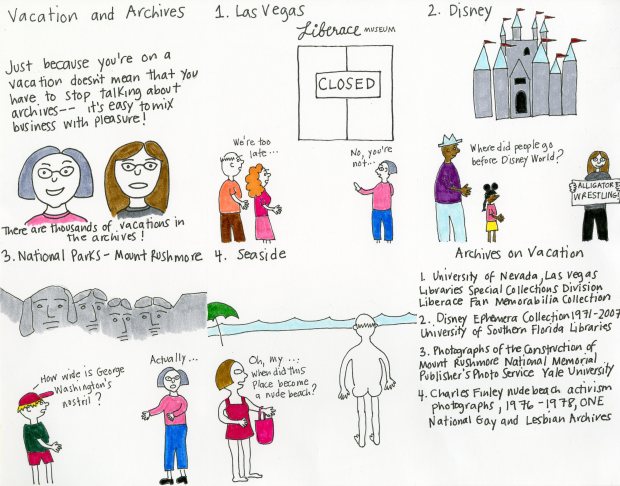 Vacation and Archives
Just because you're on a
vacation doesn't mean that you
have to stop talking about
archives-- it's easy to mix
business with pleasure!
There are thousands of vacations in
the archives!
1. Las Vegas
Liberace MUSEUM
CLOSED
We're too
late...
No, you're
not...
2. Disney
Where did people go
before Disney World?
ALLIGATOR
WRESTLING!
3. National Parks - Mount Rushmore
How wide is George
Washington's
nostril?
Actually...
4. Seaside
Oh, my...
when did this
place become
a nude beach?
Archives on Vacation
1. University of Nevada, Las Vegas
Libraries Special Collections Division
Liberace Fan Memorabilia Collection
2. Disney Ephemera Collection 1971-2007
University of Southern Florida Libraries
3. Photographs of the Construction of
Mount Rushmore National Memorial
Publisher's Photo Service Yale University
4. Charles Finley nude beach activism
photographs, 1976-1978, ONE
National Gay and Lesbian Archives